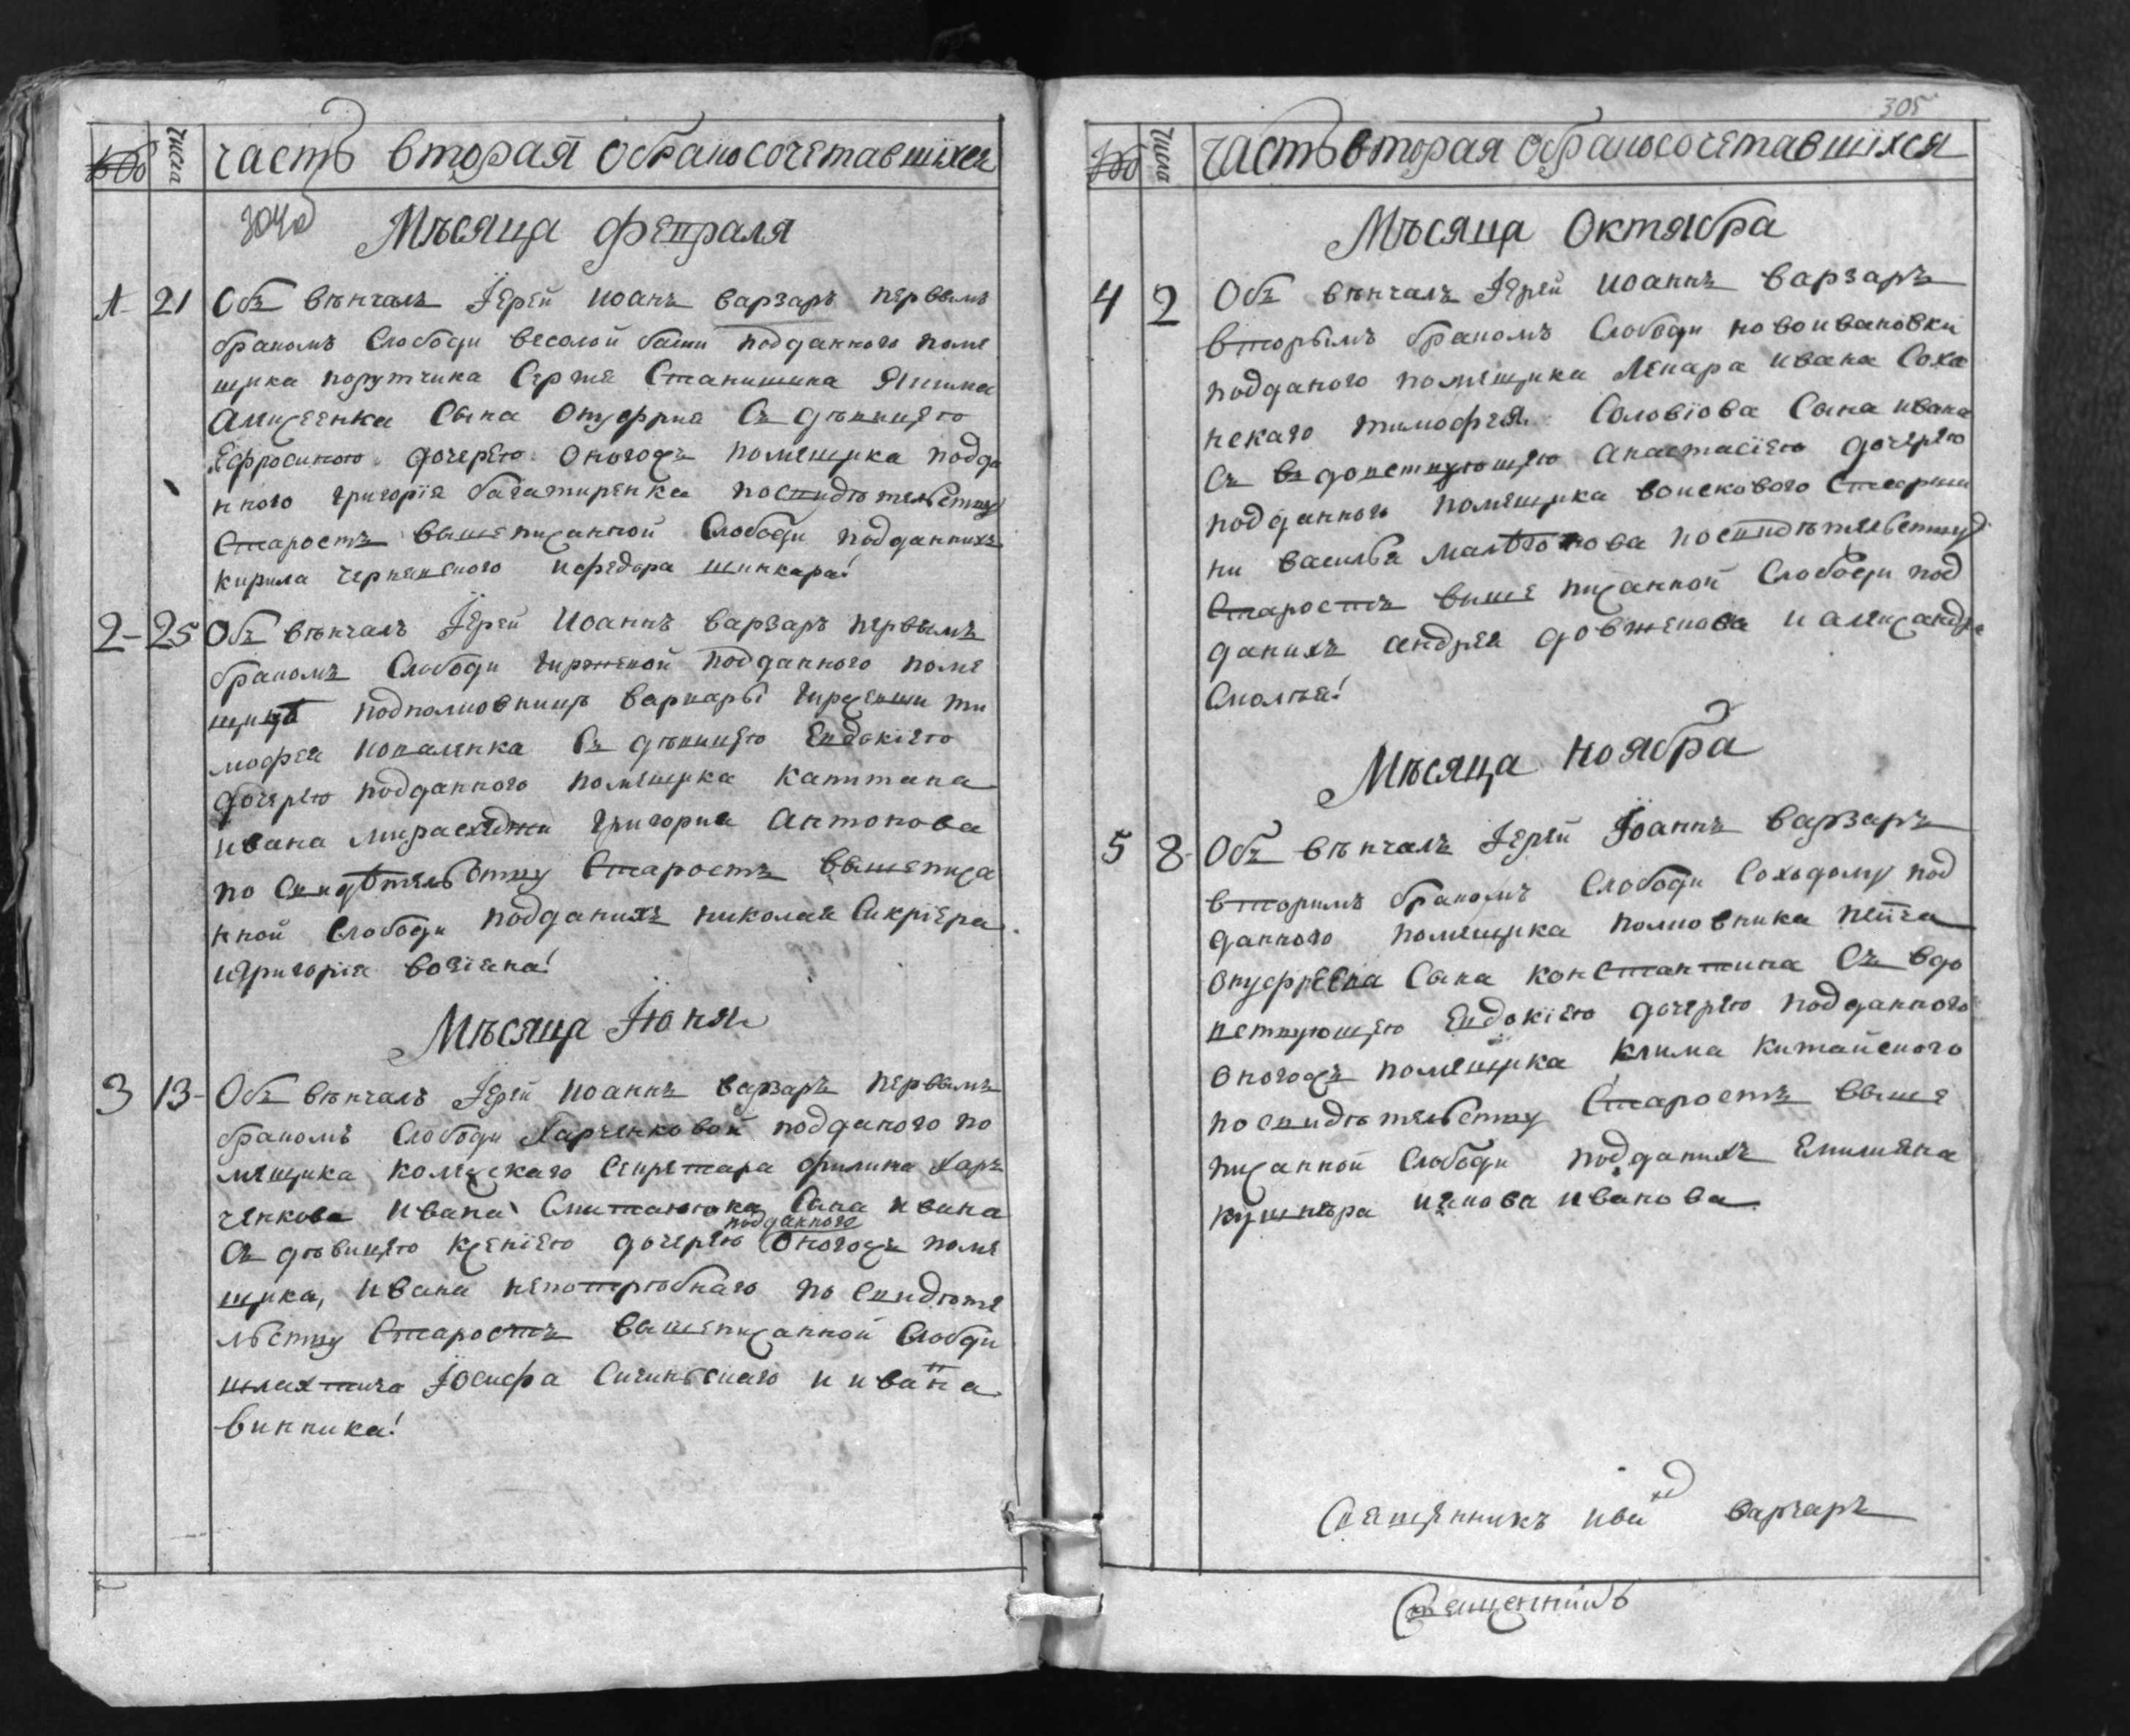 Числа
часть вторая обракосочетавшихся
304об
Мѣсяца февраля
1 21 Обѣ вѣнчалъ Іерей Иоанъ Варзарь первымъ
бракомъ Слободи веселой балки подданного поме
щика порутчика
сына Онуфрия Съ дѣвицею
Ефросиною дочерею оногожъ помещика подда
нного григорія посвидѣтелству
Старостъ вышеписанной Слободи подданнихъ
кирила чернявского ифедора шинкара
2 25 Обѣ вѣнчалъ Іерей Иоаннъ Варзаръ первымъ
бракомъ Слободи подданного поме
щицѣ подполковницѣ варвары ти
мофея коваленка Съ дѣвицею Евдокіею
дочерею подданного помещика капитана
ивана григория антонова
по Свидѣтельству Старостъ вышеписа
нной Слободи подданихъ николая
игригорія
Мѣсяца Іюня
3 13 Обѣ вѣнчалъ Іерей Иоаннъ Варзаръ первымъ
бракомъ Слободи Харченковой подданого по
мещика колежскаго Секретара филипа Хар
ченкова ивана Сына ивана
подданного
Съ дѣвицею ксеніею дочерею оногожъ поме
щика, ивана непотребнаго по Свидѣте
льству Старостъ вышеписанной Слободи
шляхтича Іосифа и ивана
винника
305
Числа
часть вторая обракосочетавшихся
Мѣсяца Октября
4 2 Обѣ вѣнчалъ Іерей Иоаннъ Варзаръ
вторымъ бракомъ Слободи новоивановки
подданого помещика Лекара ивана Соха
нскаго тимофея Соловіова Сына ивана
Съ вдовствующею анастасіею дочерею
подданного помещика воискового Старши
ни василья посвидѣтельству
Старостъ више писанной Слободи под
даникъ андрея довженова и александра
Мѣсяца ноября
5 8 Обѣ вѣнчалъ Іерей Іоаннъ Варзаръ
вторимъ бракомъ Слободи под
данного помещика полковника
онуфреева Сына константина Съ вдо
вствующею Евдокіею дочерею подданного
оногожъ помещика клима китайского
по свидѣтельству Старостъ выше
писанной Слободи подданихъ Емилиана
кушнѣра иякова иванова
Священникъ Варзаръ
Священникъ